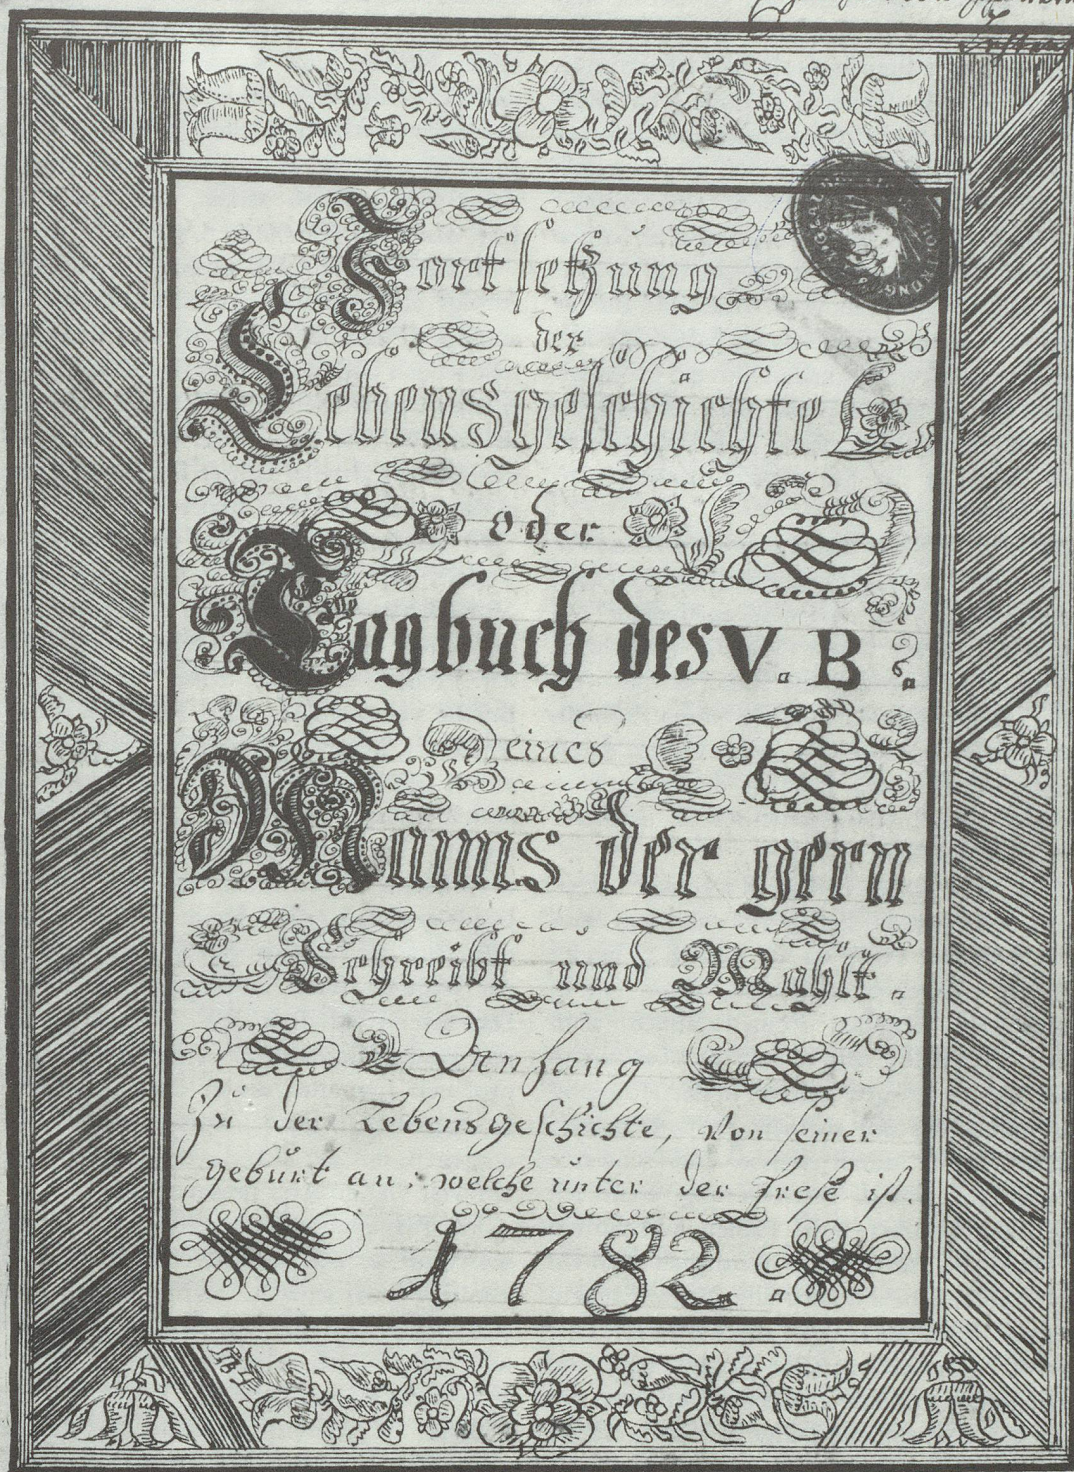 Fortsetzung
der
Lebensgeschichte
oder
Tagbuch des V. B.
eines
Manns der gern
Schreibt und Mahlt.
Anfang
Zu der Lebensgeschichte, von seiner
gebürt an; welche ünter der Preße ist.
1782.